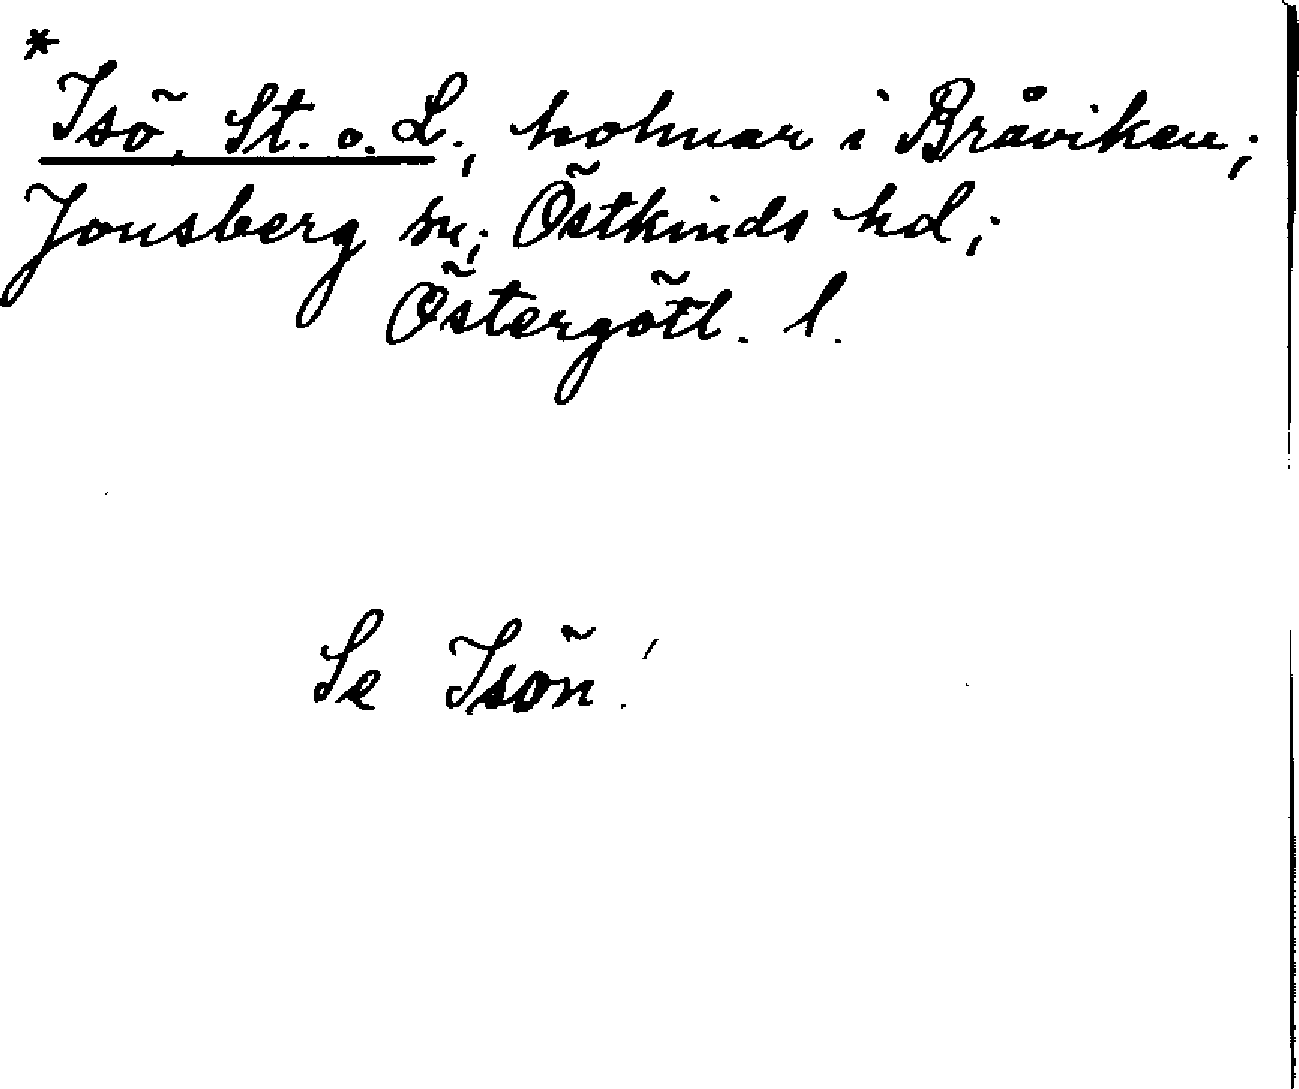 *
Isö, St. o. L., holmar i Bråviken;
Jonsberg sn; Östkinds hd;
Östergötl. l.
Se Isön!